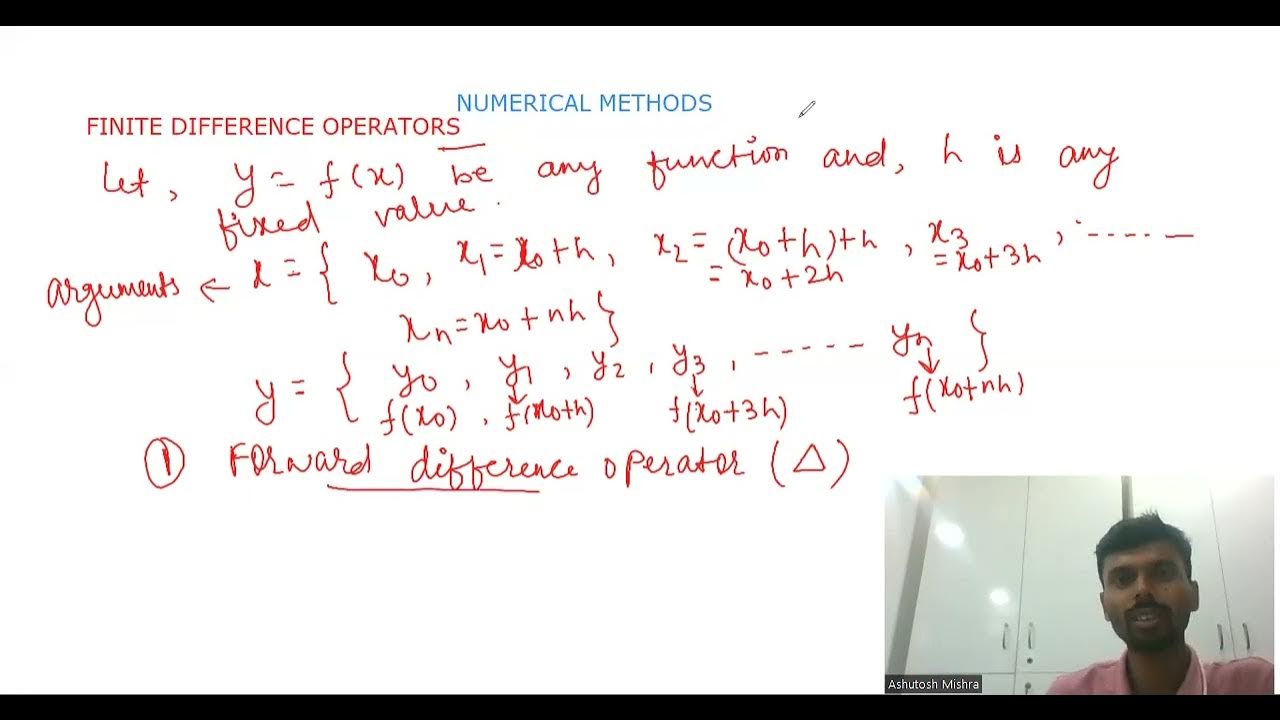 NUMERICAL METHODS
FINITE DIFFERENCE OPERATORS
Let, y = f(x) be any function and, h is any
fixed value.
arguments ← x = { x₀, x₁ = x₀+h, x₂ = (x₀+h)+h , x₃ , ------
= x₀+2h = x₀+3h
xₙ = x₀+nh }
y = { y₀ , y₁ , y₂ , y₃ , ------ yₙ }
f(x₀) , f(x₀+h) f(x₀+3h) f(x₀+nh)
① Forward difference operator (Δ)
Ashutosh Mishra